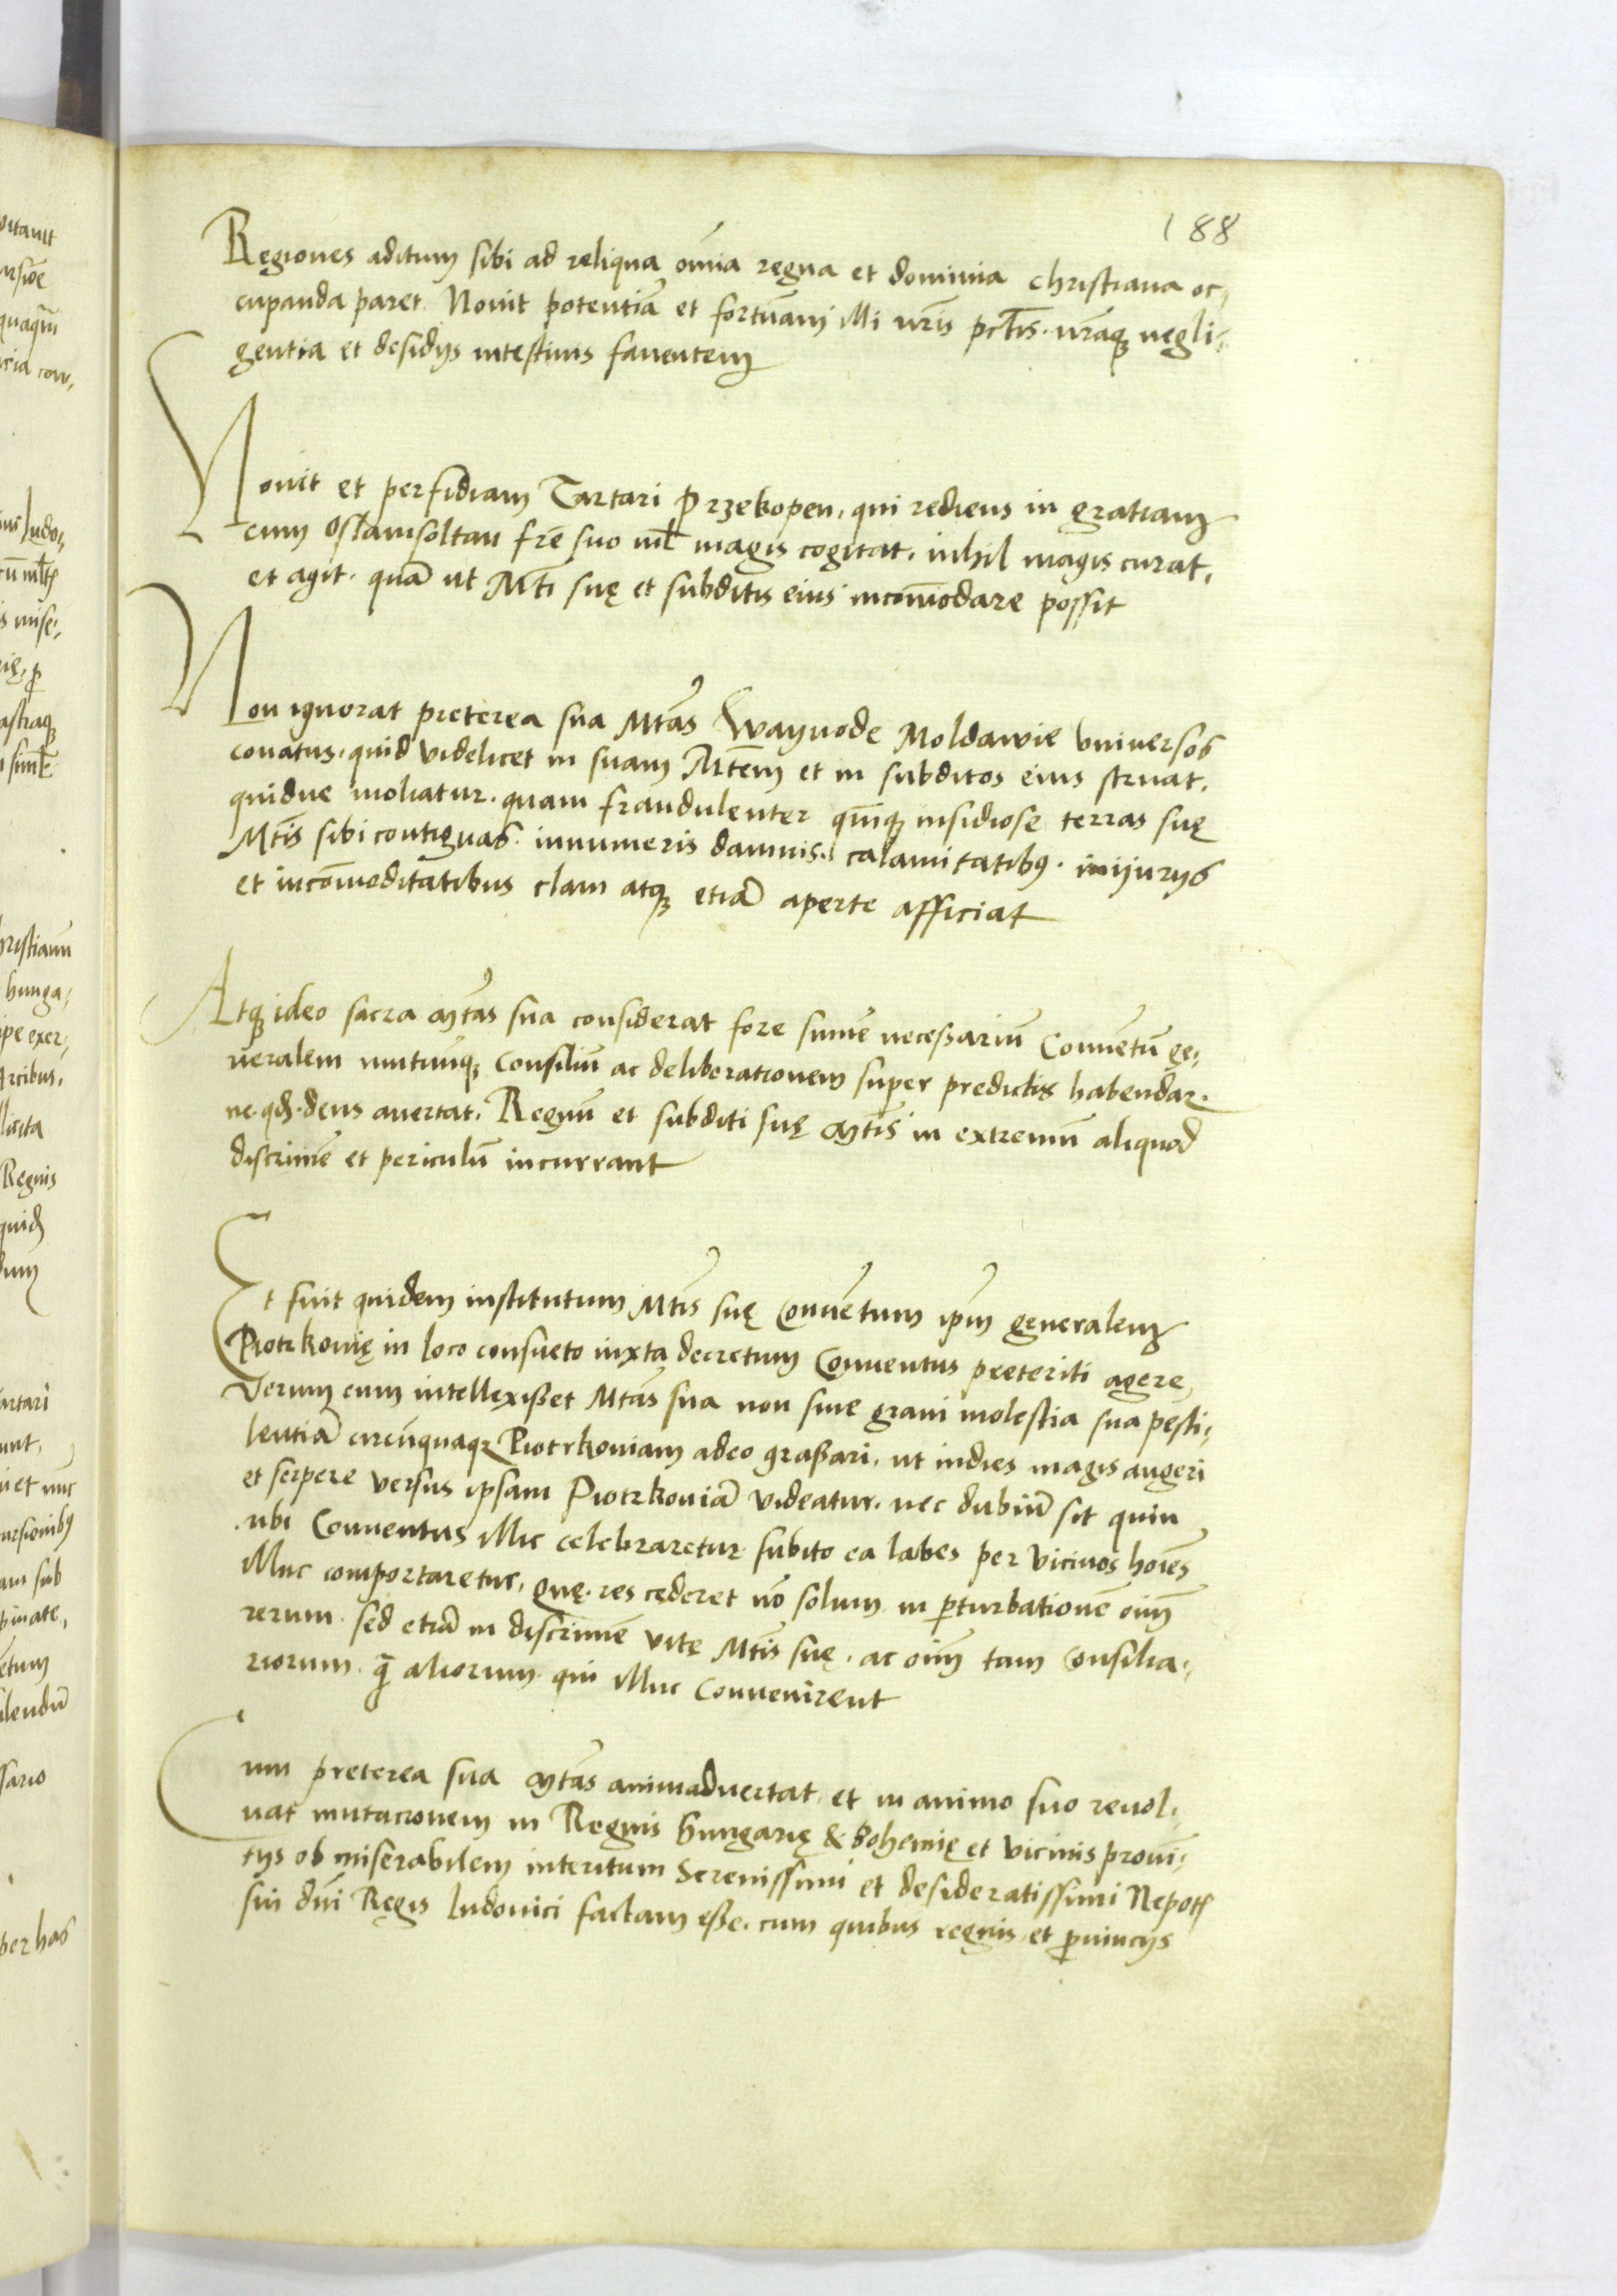 188
Regiones aditum sibi ad reliqua oīnia regna et dominia christiana oc,
cupanda paret. Nouit potentiā et fortūnam illi nr̄is pctīs. nr̄aqʒ negli,
gentia et desidijs intestinis fauentem
Nouit et perfidiam Tartari Przekopen, qui rediens in gratiam
cum Oslamsoltan fr̄e suo nil magis cogitat, inhil magis curat,
et agit. quā ut Mt̄i suę et subditis eius incom̄odare possit
Non ignorat preterea sua Mtās Waynode Moldawie vniuersos
conatus. quid videlicet in suam Mtēm et in subditos eius struat,
quidue moliatur. quam fraudulenter qm̄qʒ insidiose terras suę
Mtīs sibi contiguas. innumeris damnis. calamitatibꝰ. inijurijs
et incōmoditatibus clam atqʒ etiā aperte afficiat
Atqʒ ideo sacra Mtās sua considerat fore sum̄e necessariū Conuētū ge,
neralem mutuūqʒ consiliū ac deliberationem super predictis habendar.
ne. qđ. deus auertat. Regnū et subditi suę Mtīs in extremū aliquod
discrimē et periculū incurrant
Et fuit quidem institutum Mtīs suę Conuētum ip̄m generalem
Piotrkonię in loco consueto iuxta decretum Conuentus preteriti agere,
Verum cum intellexisset Mtās sua non sine graui molestia sua pesti,
lentiā circūnquaqʒ Piotrkoniam adeo grassari. ut indies magis augeri
et serpere versus ipsam Piotrkoniā videatur. nec dubiū sit quin
ubi Conuentus illic celebraretur subito ea labes per vicinos hoīes
illuc comportaretur, quę. res cederet nō solum in ꝑturbationē oīm̄
rerum. sed etiā in discrimē vitę Mtīs suę. ac oīm̄ tam Consilia,
riorum. q̄ aliorum. qui illuc Conuenirent
Cum preterea sua Mtās animaduertat. et in animo suo reuol,
uat mutacionem in Regnis hungarię & Bohemię et vicinis prouī,
tijs ob miserabilem interitum Serenissimi et desideratissimi Nepotꝭ
sui dn̄i Regis ludouici factam esse. cum quibus regnis et ꝓuincijs